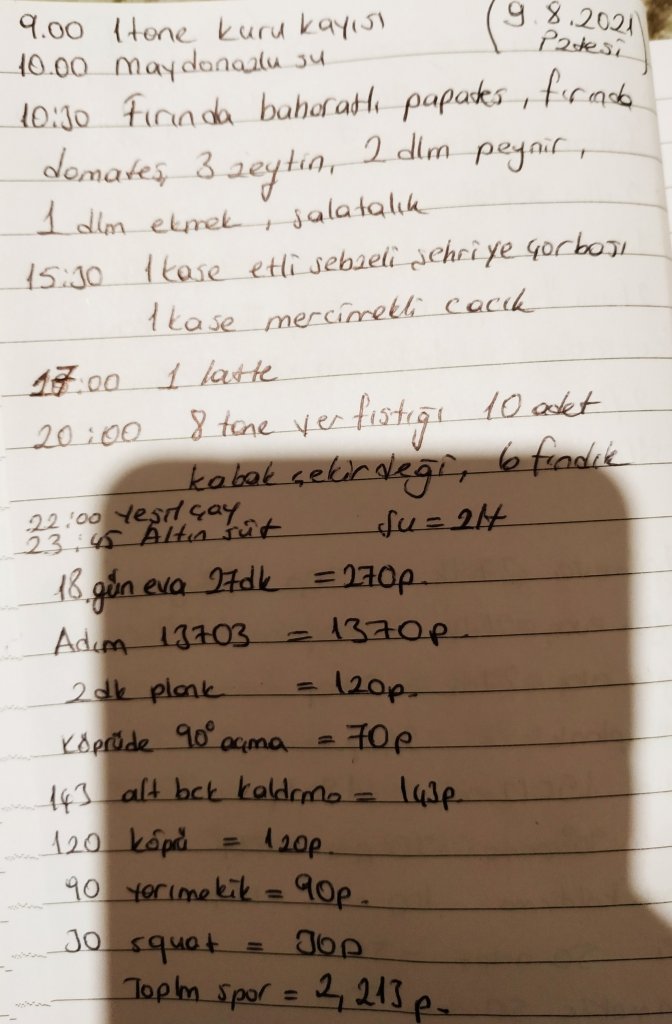 9.00 1 tane kuru kayısı (9.8.2021
10.00 Maydonozlu su Pztesi
10:30 Fırında baharatlı papates, fırında
domates, 3 zeytin, 2 dlm peynir,
1 dlm ekmek, salatalık
15:30 1 kase etli sebzeli şehriye çorbası
1 kase mercimekli cacık
17:00 1 latte
20:00 8 tane yer fıstığı 10 adet
kabak çekirdeği, 6 fındık
22:00 Yeşil çay
23:45 Altın süt Su = 2 lt
18. gün eva 27dk = 270p.
Adım 13703 = 1370p.
2 dk plank = 120p.
Köprüde 90° açma = 70p
143 alt bck kaldırma = 143p.
120 köprü = 120p.
90 yarımekik = 90p.
30 squat = 30p
Toplm spor = 2,213p.